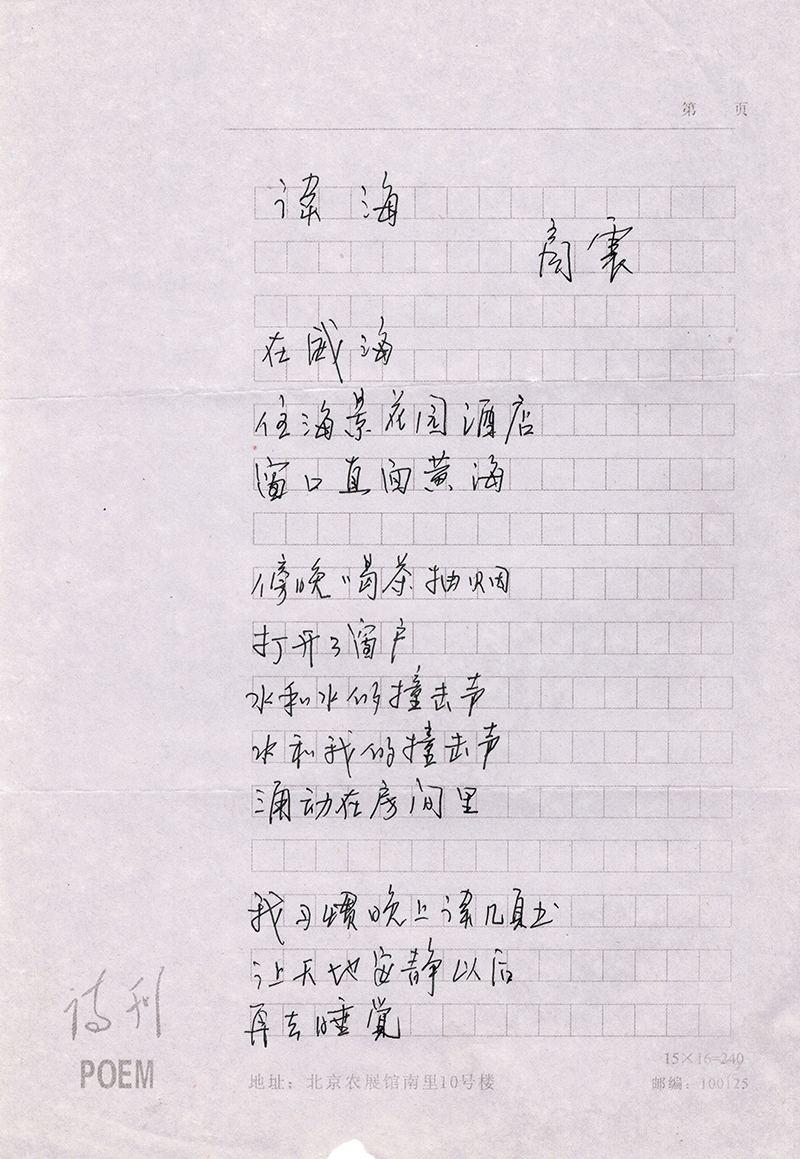 第 页
读海
商震
在威海
住海景花园酒店
窗口直面黄海
傍晚喝茶抽烟
打开了窗户
水和水的撞击声
水和我的撞击声
涌动在房间里
我习惯晚上读几页书
让天地安静以后
再去睡觉
诗刊
POEM
15×16=240
地址：北京农展馆南里10号楼
邮编：100125